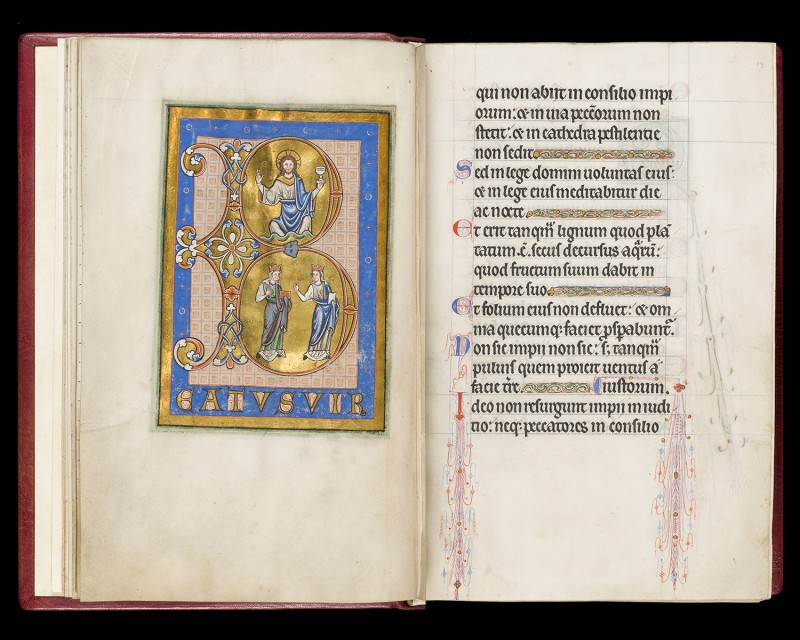 B
EATVSVIR
qui non abiit in consilio impi
orum: & in uia peccōrum non
stetit: & in cathedra pestilentie
non sedit.
Sed in lege domini uoluntas eius:
& in lege eius meditabitur die
ac nocte.
Et erit tanqm̄ lignum quod plā
tatum .ē. secus decursus aq̄rū:
quod fructum suum dabit in
tempore suo.
Et folium eius non defluet: & om
nia quecumq; faciet pspabunt᷑.
Non sic impii non sic: s; tanqm̄
puluis quem proicit uentus a᷑
facie t̄re. iustorum.
Ideo non resurgunt impii in iudi
tio: neq; peccatores in consilio